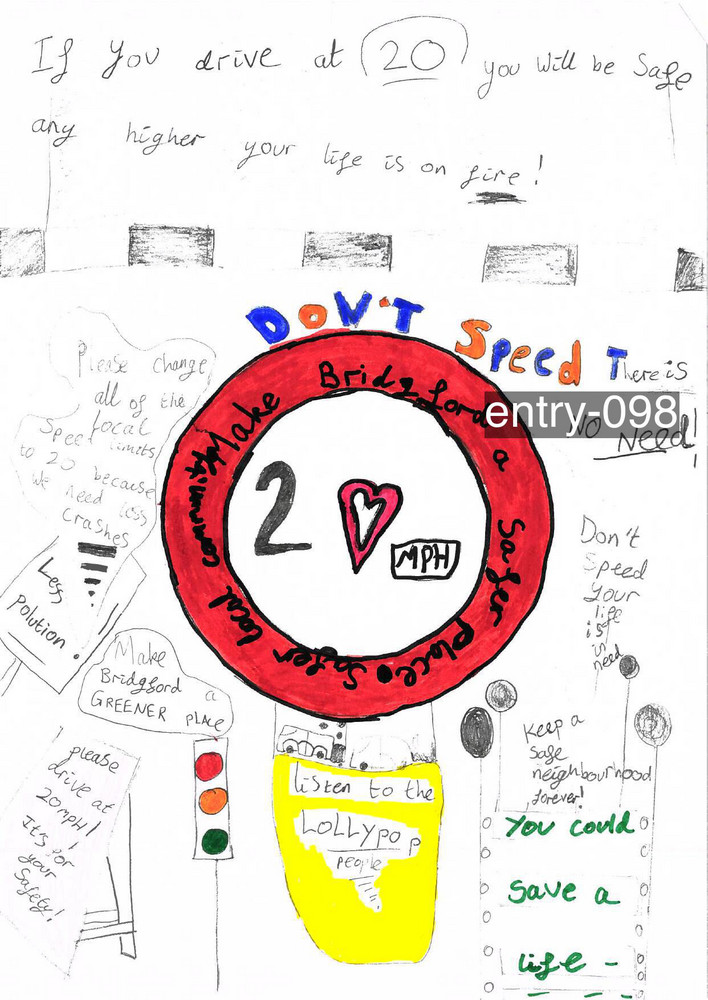 If you drive at 20 you will be safe
any higher your life is on fire!
DON'T SPEED There is
NO Need!
entry-098
Please change
all of the
local
Speed limits
to 20 because
we need less
crashes
Make Bridgford a Safer place. Safer local community
2
MPH
Less
Polution!
Don't
Speed
your
life
is
in
need
Make
Bridgford a
GREENER PLACE
please
drive at
20mph!
It's for
your
Safety!
listen to the
LOLLYPOP
PEOPLE
Keep a
safe
neighbourhood
forever!
You could
save a
life -